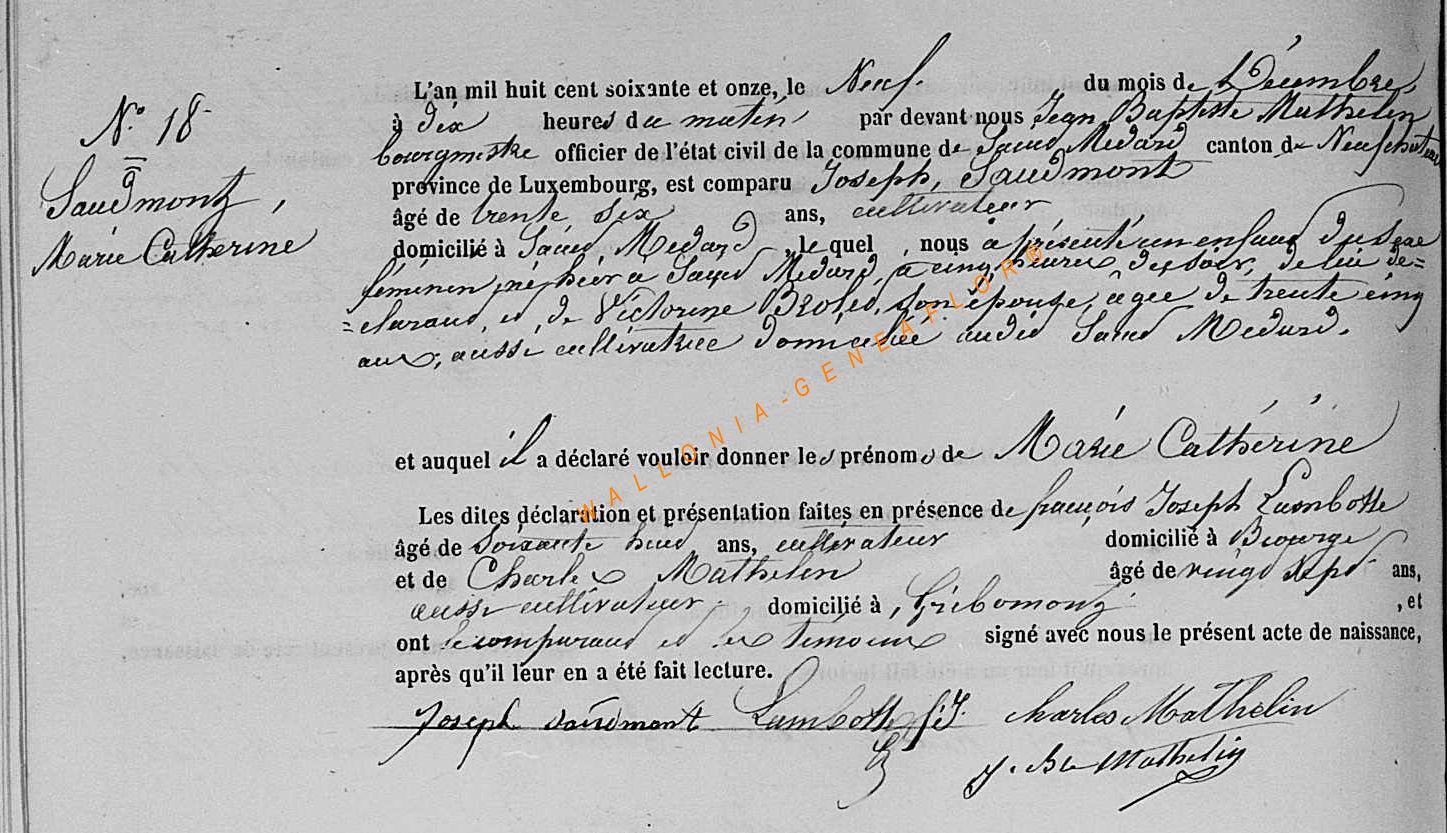 N.º 18
Saudmont,
Marie Catherine
L'an mil huit cent soixante et onze, le Neuf du mois de Décembre,
à dix heures du matin par devant nous Jean Baptiste Mathelin
bourgmestre officier de l'état civil de la commune de Saint Medard canton de Neufchateau
province de Luxembourg, est comparu Joseph, Saudmont
âgé de trente six ans, cultivateur
domicilié à Saint Medard, lequel, nous a présenté un enfant du sexe
féminin, né hier a Saint Medard, à cinq heures du soir, de lui dé=
=clarant, et, de Victorine son épouse, agée de trente cinq
ans, aussi cultivatrice domiciliée audit Saint Medard.
et auquel il a déclaré vouloir donner les prénoms de Marie Catherine
Les dites déclaration et présentation faites en présence de françois Joseph Lambotte
âgé de Soixante huit ans, cultivateur domicilié à Biourge
et de Charles Mathelin âgé de vingt sept ans,
aussi cultivateur domicilié à, Gribomont, et
ont le comparant et les témoins signé avec nous le présent acte de naissance,
après qu'il leur en a été fait lecture.
Joseph saudmont Lambotte f. J. Charles Mathelin
J. Bte Mathelin
WALLONIA-GENEAFLOR®